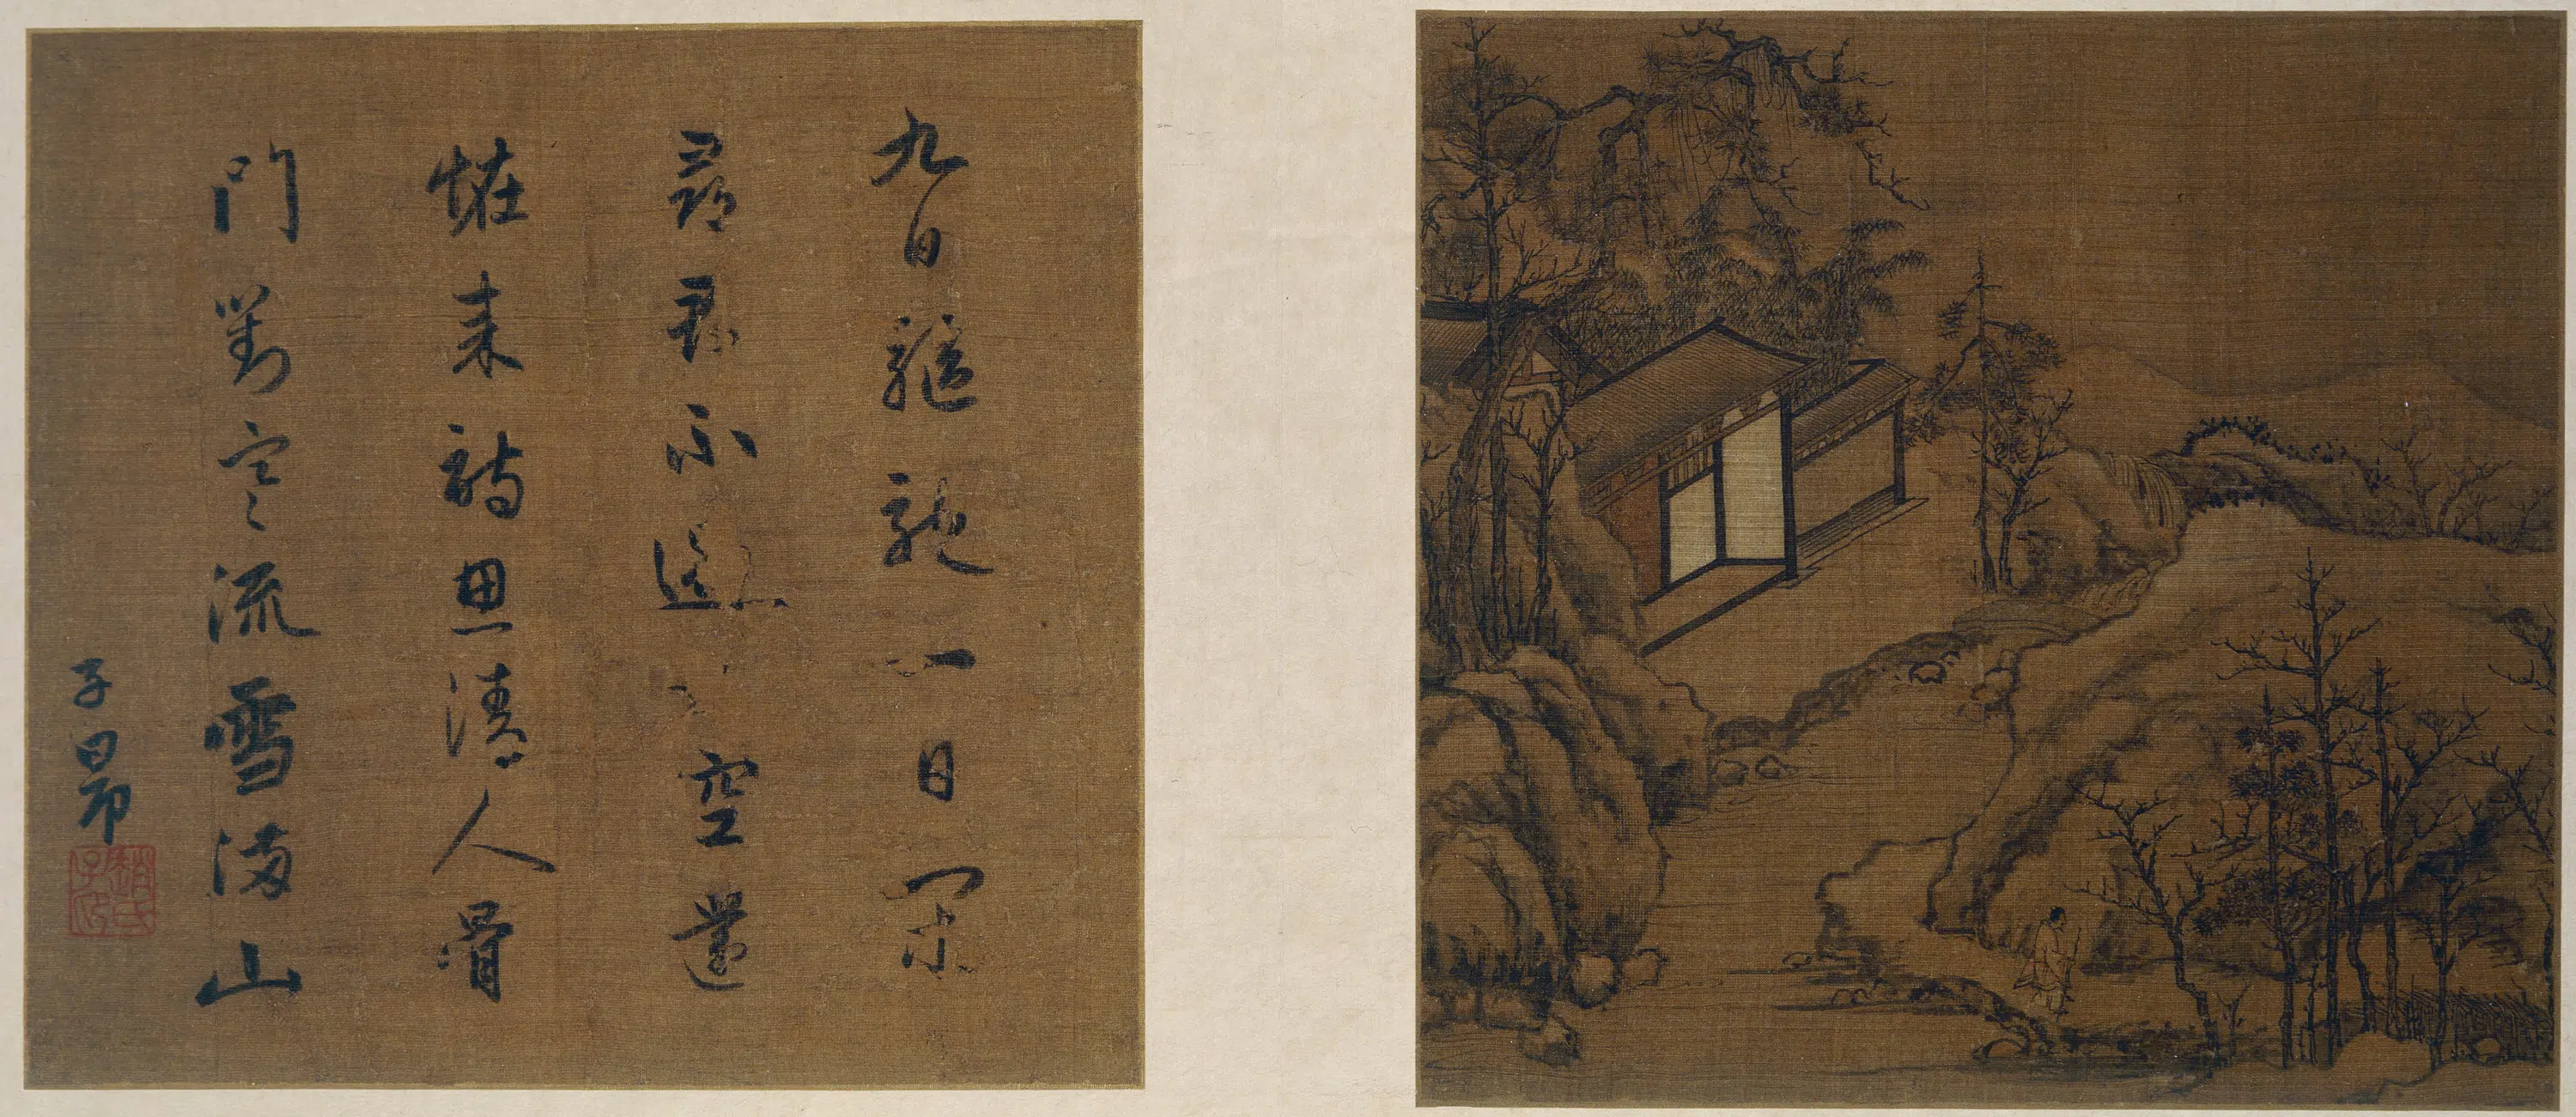 九日驅馳一日閑
尋君不遇空還
恠來詩思清人骨
門對寒流雪滿山
子昂
趙氏子昂